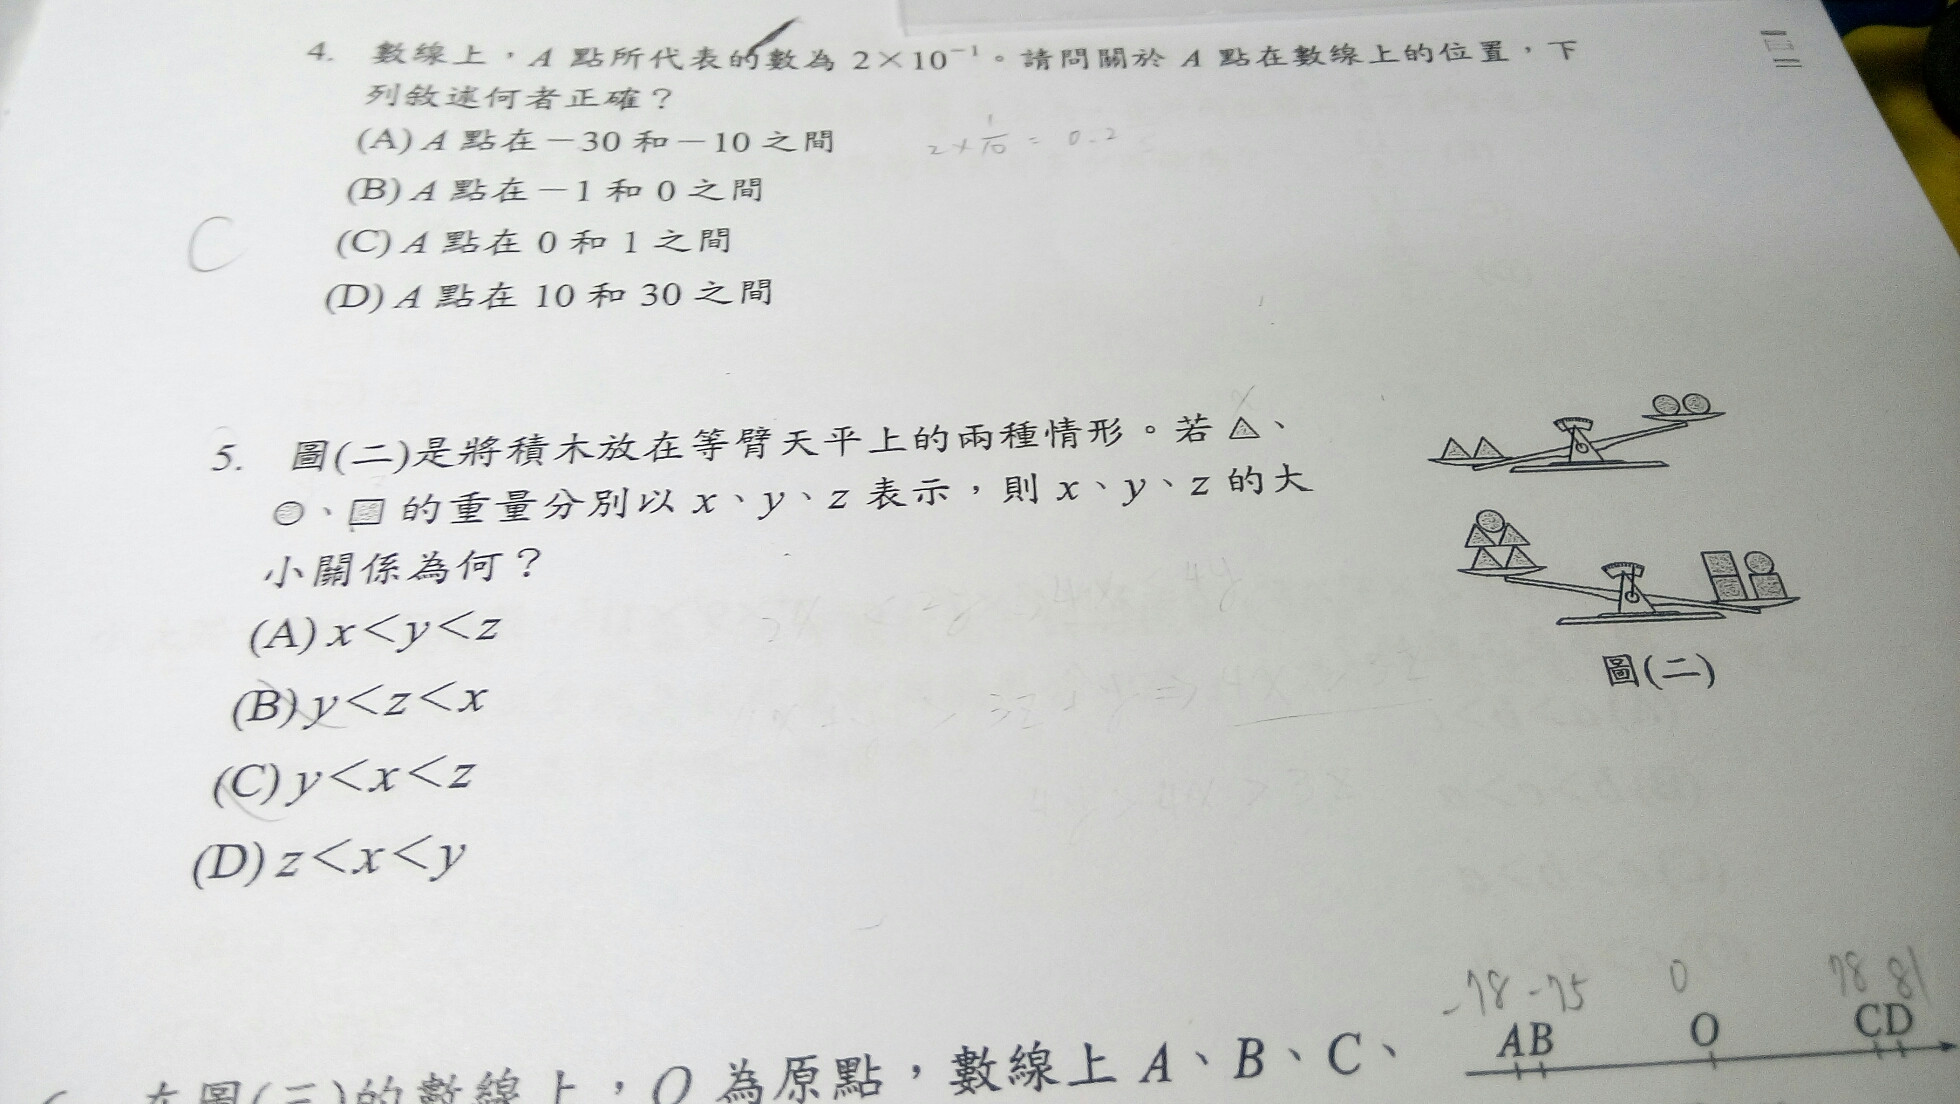 4. 數線上，A 點所代表的數為 2×10⁻¹。請問關於 A 點在數線上的位置，下
列敘述何者正確？
(A) A 點在－30 和－10 之間
2×1/10 = 0.2
(B) A 點在－1 和 0 之間
C
(C) A 點在 0 和 1 之間
(D) A 點在 10 和 30 之間
5. 圖(二)是將積木放在等臂天平上的兩種情形。若 △、
○、□ 的重量分別以 x、y、z 表示，則 x、y、z 的大
小關係為何？
(A) x<y<z
(B) y<z<x
(C) y<x<z
(D) z<x<y
圖(二)
-78 -75 0 78 81
AB O CD
在圖(三)的數線上，O 為原點，數線上 A、B、C、